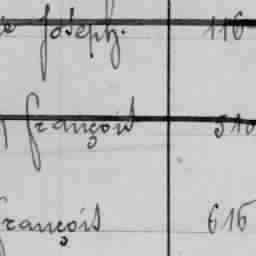 Joseph. 116
François 510
François 616